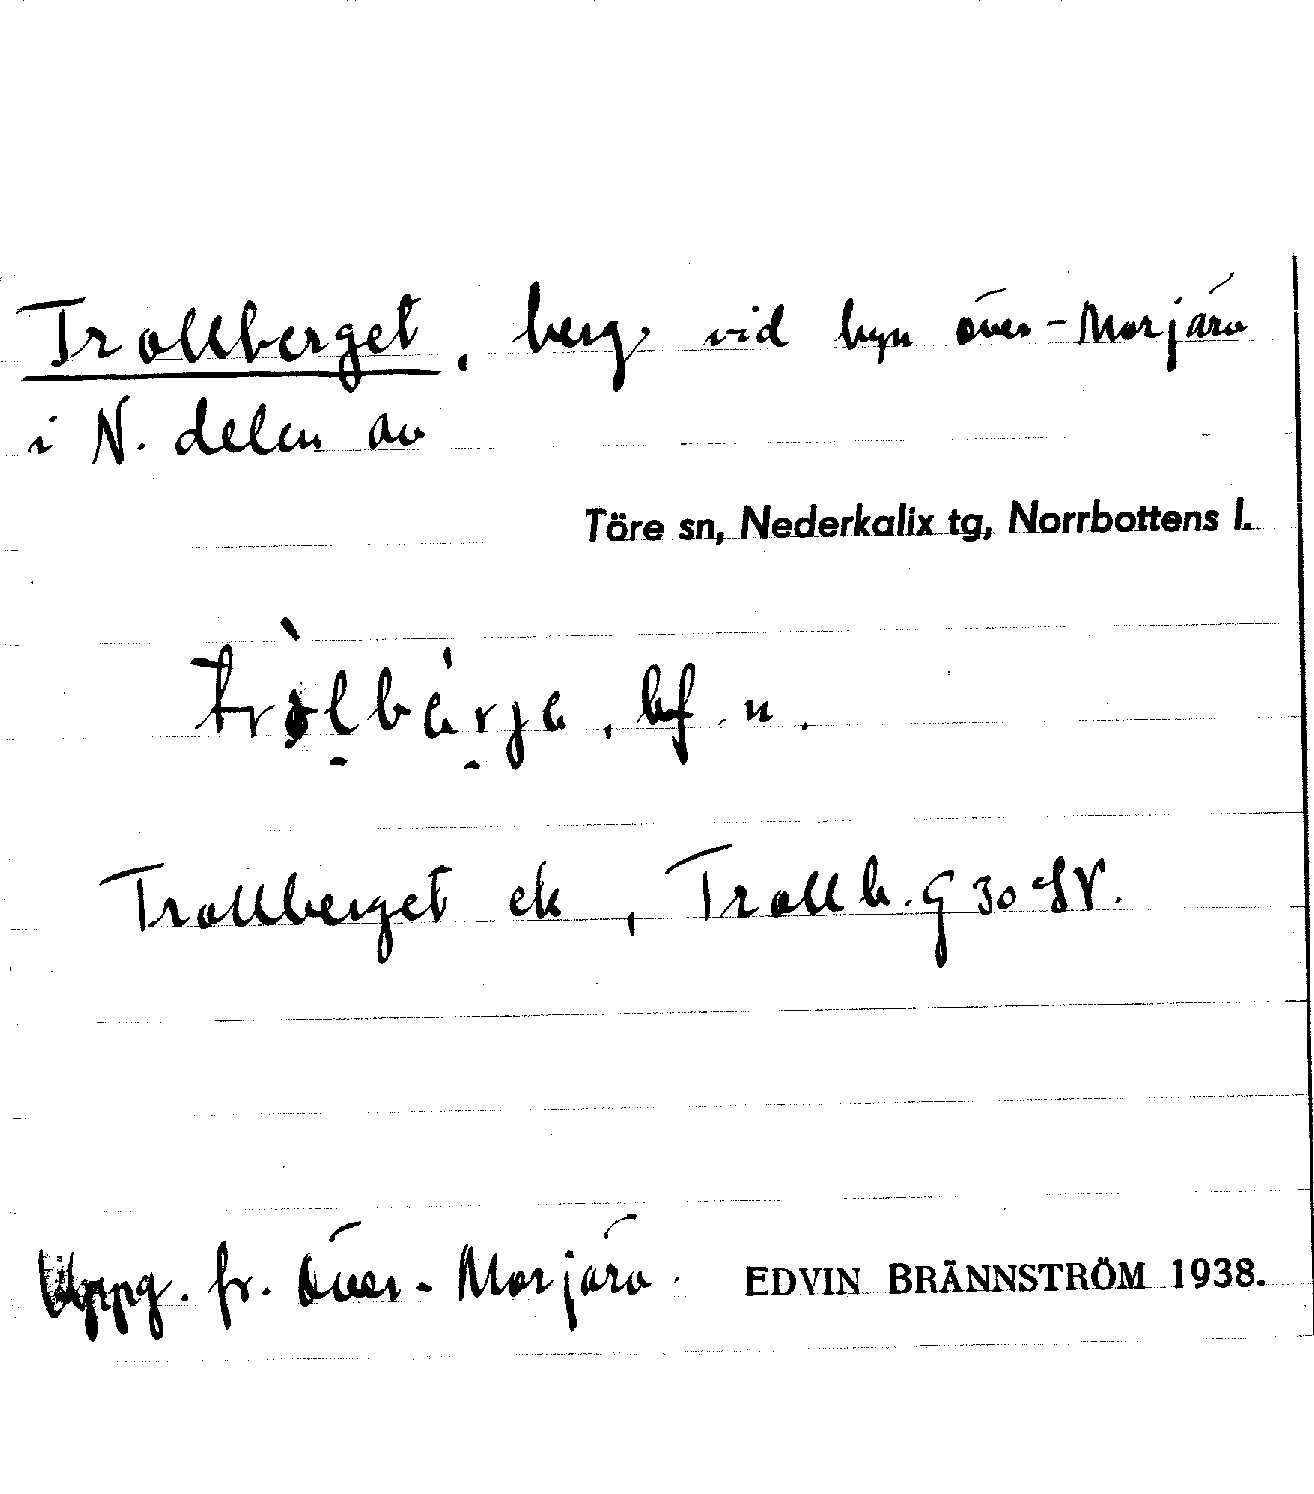 Trollberget, berg vid byn Över-Morjärv
i N. delen av
Töre sn, Nederkalix tg, Norrbottens l.
bf. n.
Trollberget ek, Trollb. G 30 SV.
Uppg. fr. Över-Morjärv. EDVIN BRÄNNSTRÖM 1938.